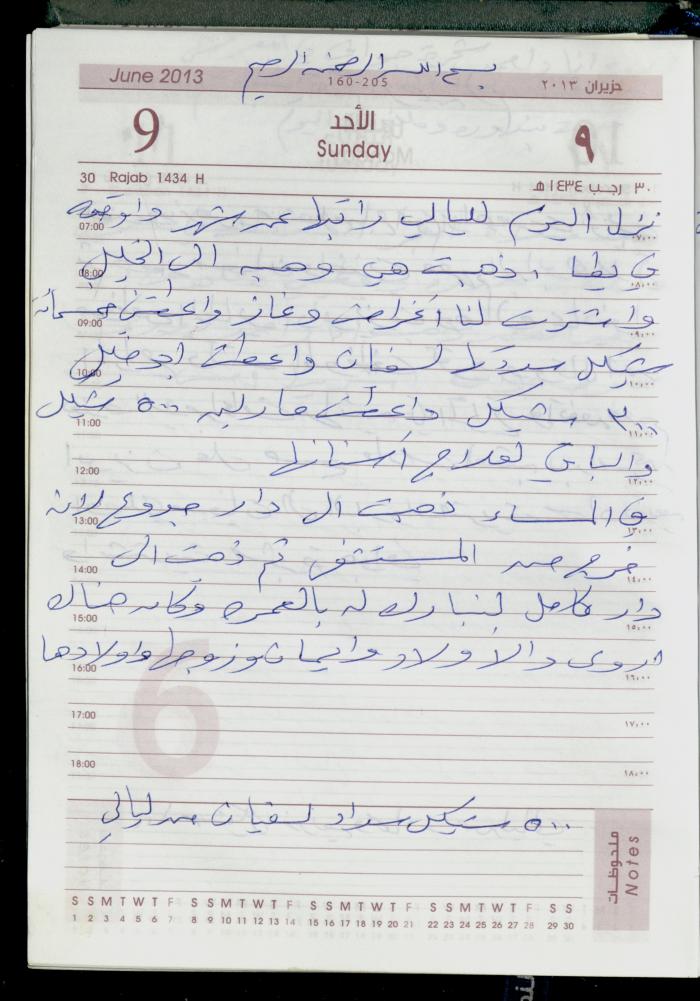 بسم الله الرحمن الرحيم
June 2013
160-205
حزيران ٢٠١٣
9
الأحد
Sunday
٩
30 Rajab 1434 H
٣٠ رجب ١٤٣٤هـ
نزل اليوم لليالي راتبا عن شهر
07:00 ٧,٠٠
ذهبت هي وهبه الى الخليل
08:00 ٨,٠٠
واشترت لنا أغراض وغاز واعطتني خمسمائة
09:00 ٩,٠٠
شيكل سدد لسفيان واعطت ابو خليل
10:00 ١٠,٠٠
٣٠٠ شيكل واعطت ٥٠٠ شيكل
11:00 ١١,٠٠
والباقي لعلاج أسنانها
12:00 ١٢,٠٠
في المساء ذهبت الى دار لانه
13:00 ١٣,٠٠
خرج من المستشفى ثم ذهبت الى
14:00 ١٤,٠٠
دار كامل لنبارك له بالعمره وكان هناك
15:00 ١٥,٠٠
اروى والاولاد وايمان وزوجها واولادها
16:00 ١٦,٠٠
17:00 ١٧,٠٠
18:00 ١٨,٠٠
٥٠٠ شيكل سداد لسفيان من ليالي
ملحوظات
Notes
S S M T W T F S S M T W T F S S M T W T F S S M T W T F S S
1 2 3 4 5 6 7 8 9 10 11 12 13 14 15 16 17 18 19 20 21 22 23 24 25 26 27 28 29 30